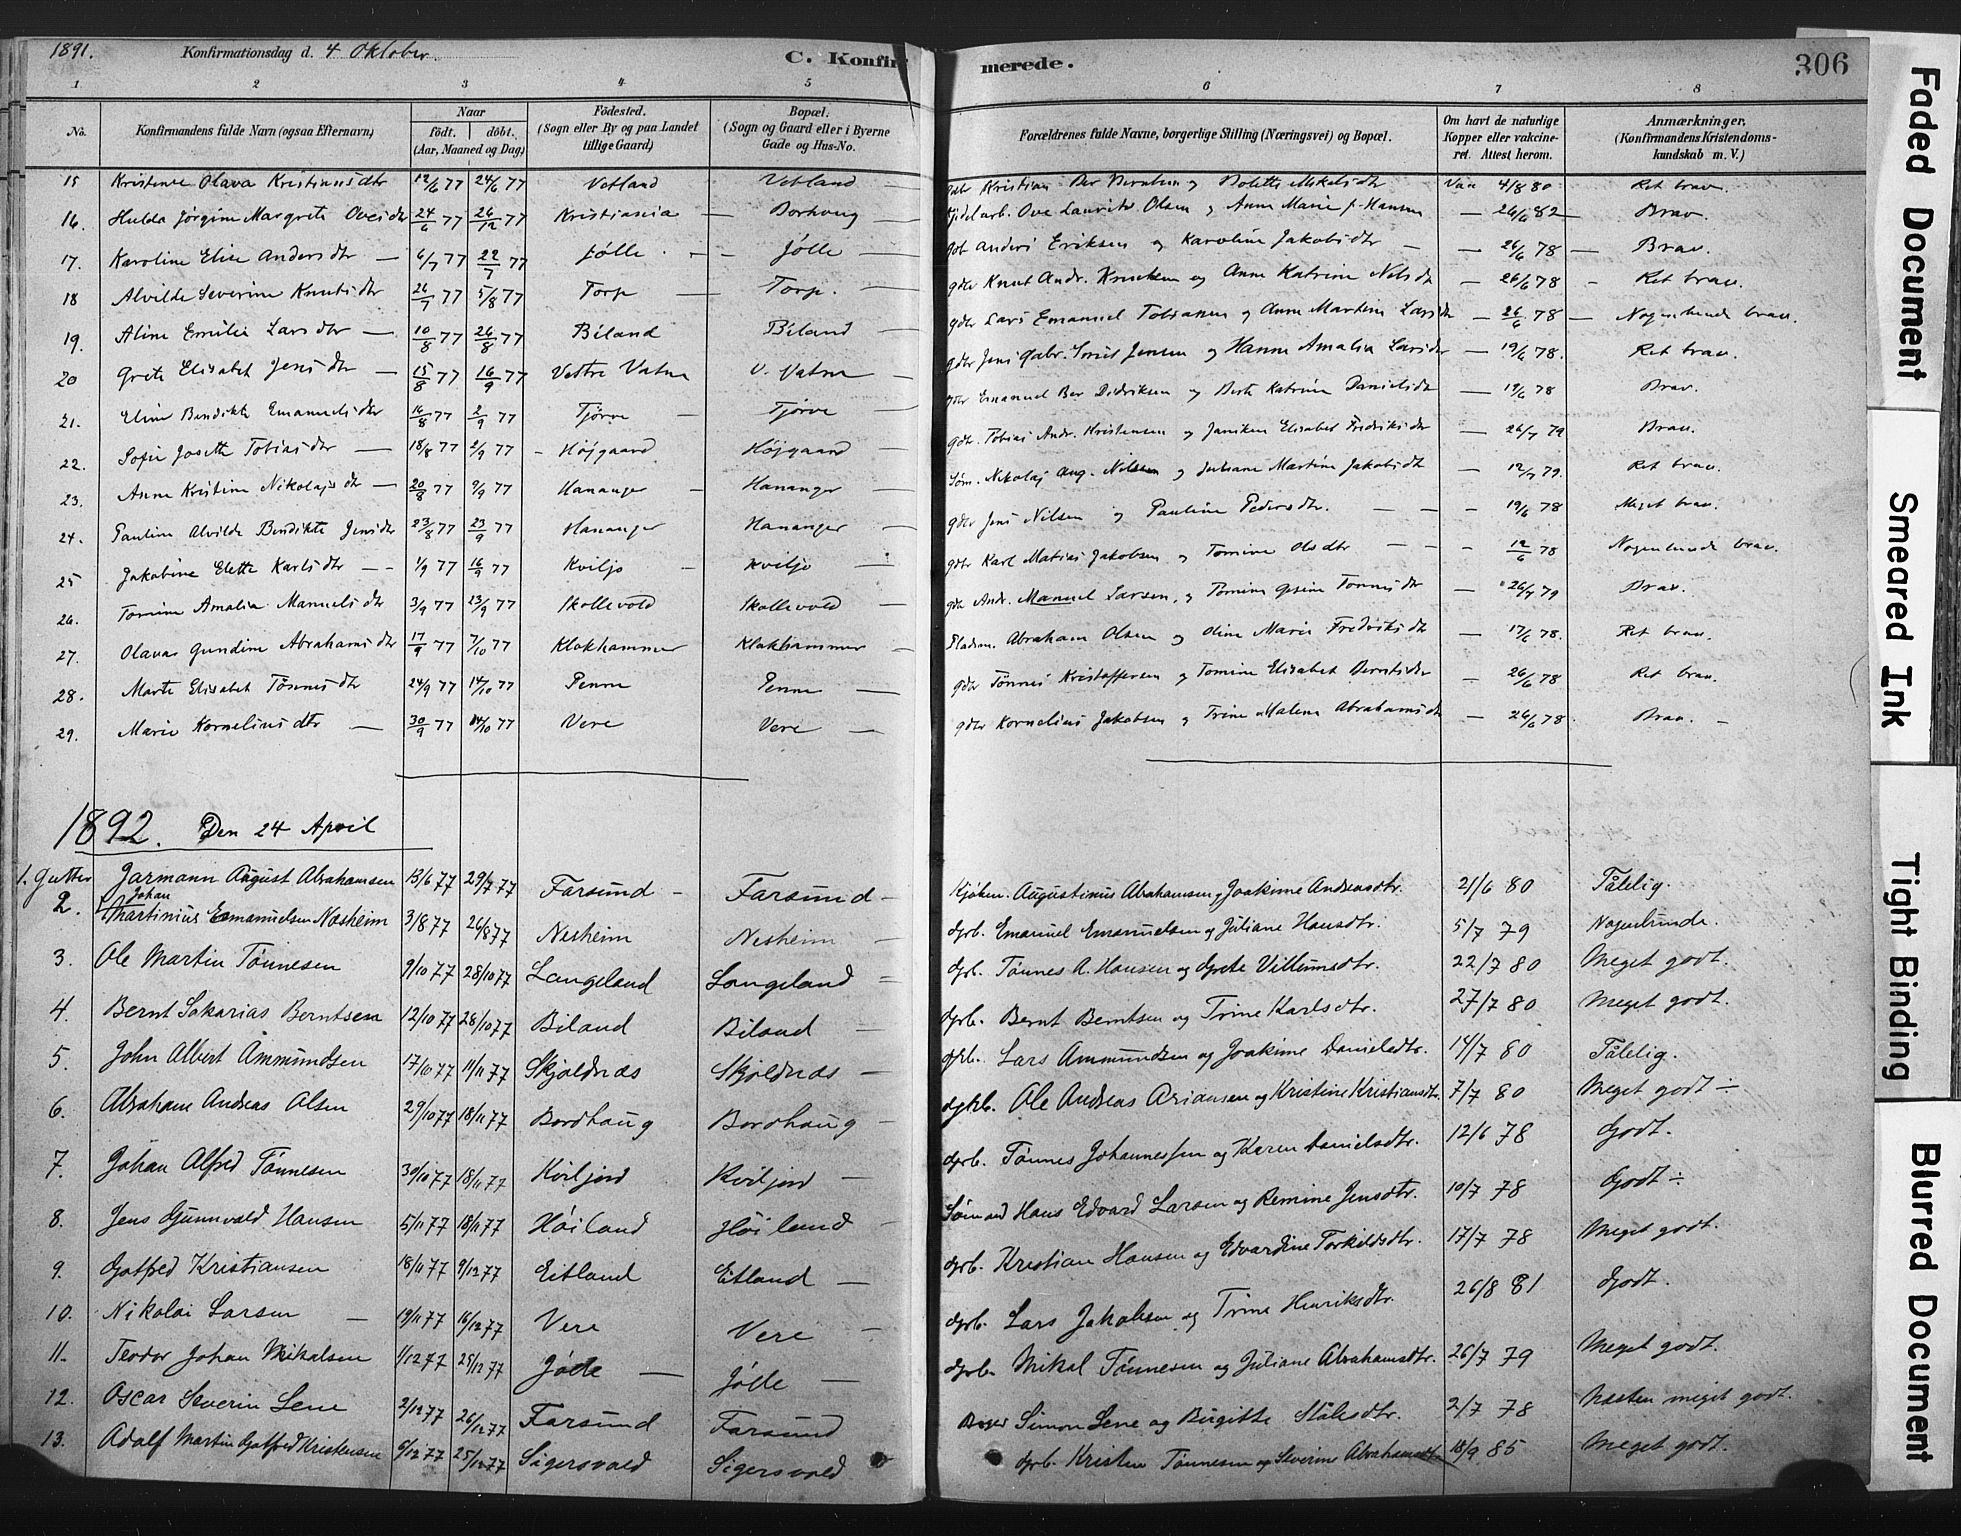 1891. Konfirmationsdag d. 4 Oktober. C. Konfir merede. 306
1 2 3 4 5 6 7 8
No. Konfirmandens fulde Navn (ogsaa Efternavn) Naar födt. döbt. (Aar, Maaned og Dag) Födested. (Sogn eller By og paa Landet tillige Gaard) Bopæl. (Sogn og Gaard eller i Byerne Gade og Hus-No. Forældrenes fulde Navne, borgerlige Stilling (Næringsvei) og Bopæl. Om havt de naturlige Kopper eller vakcineret. Attest herom. Anmærkninger, (Konfirmandens Kristendomskundskab m. V.)
15 Kristense Olava Kristiansdtr 12/6 77 24/6 77 Vetland Vetland Kristian Ber Berntsen og Bolette Mikalsdtr Vac 4/8 80 Ret brav
16. Hulda Jørgine Margrete Ovesdtr 24/6 77 26/12 77 Kristiania Borhoug Ove Laurits Olsen og Anne Marie f. Hansen — 26/6 82 Brav.
17. Karoline Elise Andersdtr — 6/7 77 22/7 77 Jølle Jølle gdb Anders Eriksen og Karoline Jakobsdtr — 26/6 78 Brav.
18 Alvilde Severine Knutsdtr 26/7 77 5/8 77 Torp Torp. gdbr Knut Andr. Knutsen og Anne Katrine Nilsdtr — 26/6 78 Ret brav.
19. Aline Emilie Larsdtr — 10/8 77 26/8 77 Biland Biland gdbr Lars Emanuel Tobiasen og Anne Martine Larsdtr — 26/6 78 Nogenlunde brav.
20 Grete Elisabet Jensdtr — 15/8 77 16/9 77 Vestre Vatne V. Vatne gdbr Jens Gabr. Jensen og Hanne Amalia Larsdtr — 19/6 78. Ret brav.
21. Eline Bendikte Emanuelsdtr 16/8 77 2/9 77 Tjørve Tjørve gdbr Emanuel Ber Didriksen og Berte Katrine Danielsdtr — 19/6 78 Brav.
22. Sofie Josette Tobiasdtr — 18/8 77 2/9 77 Højgaard Højgaard gdbr. Tobias Andr. Kristensen og Janiken Elisabet Fredriksdtr — 26/7 79 Brav.
23. Anne Kristine Nikolajsdtr — 20/8 77 9/9 77 Hananger Hananger Søm. Nikolaj Aug. Nilsen og Juliane Martine Jakobsdtr — 12/7 79. Ret brav.
24. Pauline Alvilde Bendikte Jensdtr 23/8 77 23/9 77 Hananger Hananger gdbr Jens Nilsen og Pauline Pedersdtr. — 19/6 78 Meget brav.
25 Jakobine Elette Karlsdtr — 1/9 77 16/9 77 Kviljo Kviljo gdbr Karl Matias Jakobsen og Tomine Olsdtr — 12/6 78 Nogenlunde brav.
26. Tomine Amalia Manuelsdtr 3/9 77 23/9 77 Skollevold Skollevold gdbr Andr. Manuel Larsen, og Tomine Gesine Tønnesdtr — 26/7 79 Brav.
27. Olavas Gundine Abrahamsdtr 17/9 77 7/10 77 Klokhammer Klokhammer Pladsm. Abraham Olsen og Oline Marie Fredriksdtr — 17/6 78. Ret brav.
28. Marte Elisabet Tönnesdtr 24/9 77 14/10 77 Penne Penne gdbr Tönnes Kristoffersen og Tomine Elisabet Berntsdtr — 26/6 78 Ret brav.
29. Marie Korneliusdtr — 30/9 77 14/10 77 Vere Vere gdbr Kornelius Jakobsen og Trine Malene Abrahamsdtr — 26/6 78. Brav.
1892. Den 24 April
1. Gutter Jarmann August Abrahamsen 13/6 77 29/7 77 Farsund Farsund Augustinus Abrahamsen og Joakime Andreasdtr. 21/6 80 Tålelig.
2. Johan Martinius Emanuelsen Næsheim 3/8 77 26/8 77 Nesheim Nesheim Grb. Emanuel Emanuelsen og Juliane Hansdtr. 5/7 79 Nogenlunde.
3. Ole Martin Tönnesen 9/10 77 28/10 77 Langeland Langeland Grb. Tønnes A. Hansen og Grete Villumsdtr. 22/7 80 Meget godt.
4. Bernt Sakarias Berntsen 12/10 77 28/10 77 Biland Biland Grb. Bernt Berntsen og Trine Karlsdtr. 27/7 80 Meget godt.
5. John Albert Ammundsen 17/10 77 11/11 77 Skjoldnæs Skjoldnæs Lars Ammundsen og Joakime Danielsdtr. 14/7 80 Tålelig.
6. Abraham Andreas Olsen 29/10 77 18/11 77 Bordhaug Bordhaug Ole Andreas Ariansen og Kristine Kristiansdtr. 7/7 80 Meget godt ÷
7. Johan Alfred Tönnesen 30/10 77 18/11 77 Kviljord Kviljord Grb. Tönnes Johannessen og Karen Danielsdtr. 12/6 78 Godt.
8. Jens Gunnvald Hansen 5/11 77 18/11 77 Höiland Höiland Sömand Hans Edvard Larsen og Remine Jensdtr. 10/7 78 Godt ÷
9. Gotfred Kristiansen 18/11 77 9/12 77 Eitland Eitland Grb. Kristian Hansen og Edvardine Torkildsdtr. 17/7 78 Meget godt.
10. Nikolai Larsen — 19/11 77 16/12 77 Vere Vere Grb. Lars Jakobsen og Trine Henriksdtr. 26/8 81 Godt.
11. Teodor Johan Mikalsen 1/12 77 25/12 77 Jølle Jølle Grb. Mikal Tønnesen og Juliane Abrahamsdtr. 26/7 79 Meget godt.
12. Oscar Severin Lene 2/12 77 26/12 77 Farsund Farsund Simon Lene og Birgitte Ståledtr. 2/7 78 Næsten meget godt.
13. Adolf Martin Gotfred Kristensen 9/12 77 25/12 77 Sigersvold Sigersvold Grb. Kristen Tønnesen og Severine Abrahamsdtr. 18/9 85 Meget godt.
Faded Document
Smeared Ink
Tight Binding
Blurred Document